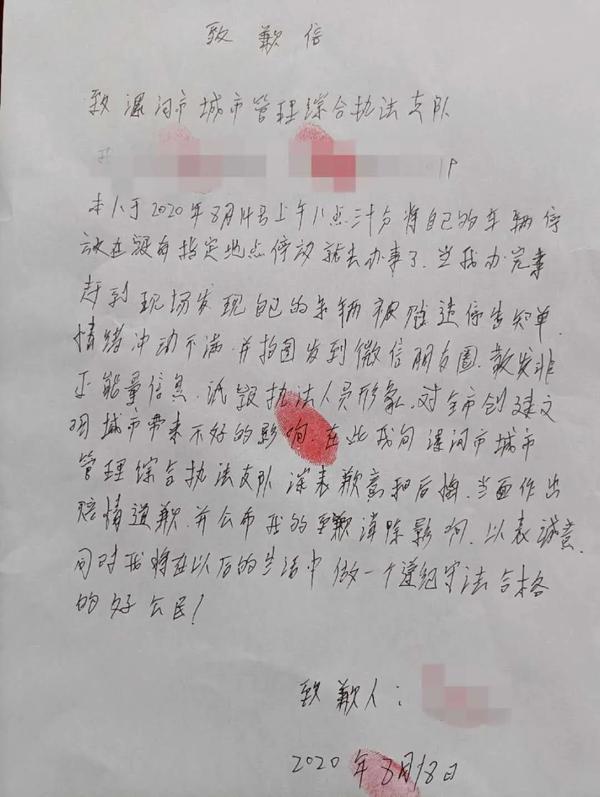 致歉信
致漯河市城市管理综合执法支队
本人于2020年8月14号上午八点三十分将自己的车辆停
放在没有指定地点停放就去办事了.当我办完事
赶到现场发现自己的车辆被贴违停告知单.
情绪冲动不满.并拍图发到微信朋友圈.散发非
正能量信息.诋毁执法人员形象.对全市创建文
明城市带来不好的影响.在此我向漯河市城市
管理综合执法支队深表歉意和后悔.当面作出
赔情道歉.并公布我的致歉消除影响.以表诚意.
同时我将在以后的生活中做一个遵纪守法合格
的好公民!
致歉人:
2020年8月18日